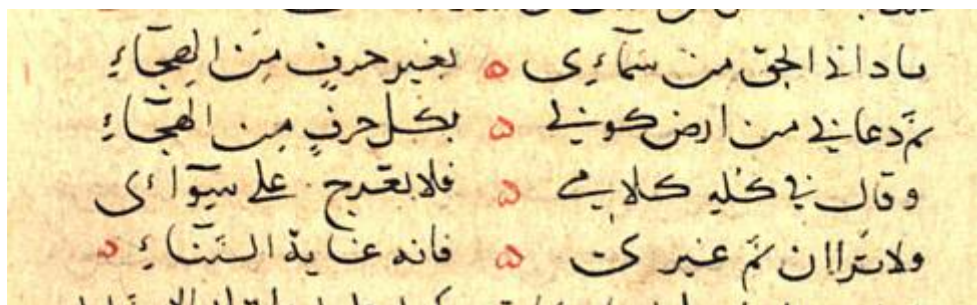 ناداني الحق من سمآءى ه بغير حرفٍ مِن الهجآءِ
ثمَّ دعاني من ارض كوني ه بكل حرفٍ مِن الهجآءِ
وقال لي كله كلامي ه فلا تعرج على سِوآئى
ولا ترا ان ثمَّ غيرى ه فانه غاية السَّنآءِ ه